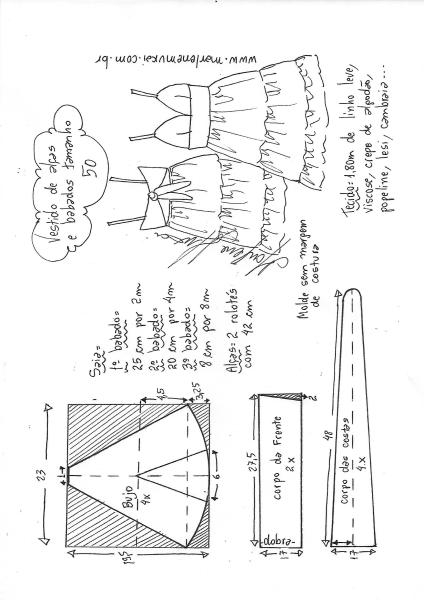 www.marlenemukai.com.br
Vestido de alças
e babados tamanho
50
Tecido: 1,80m de linho leve,
viscose, crepe de algodão,
popeline, lesi, cambraia...
Marlene
Mukai
Saia:
1º babado:
25 cm por 2m
2º babado:
20 cm por 4m
3º babado:
8 cm por 8m
Alças: 2 rolotês
com 42 cm
Molde sem margem
de costura
23
1
4,5
3,25
Bujo
4x
6
19,5
27,5
2
corpo da Frente
2x
-dobra-
17
48
corpo das costas
4x
17